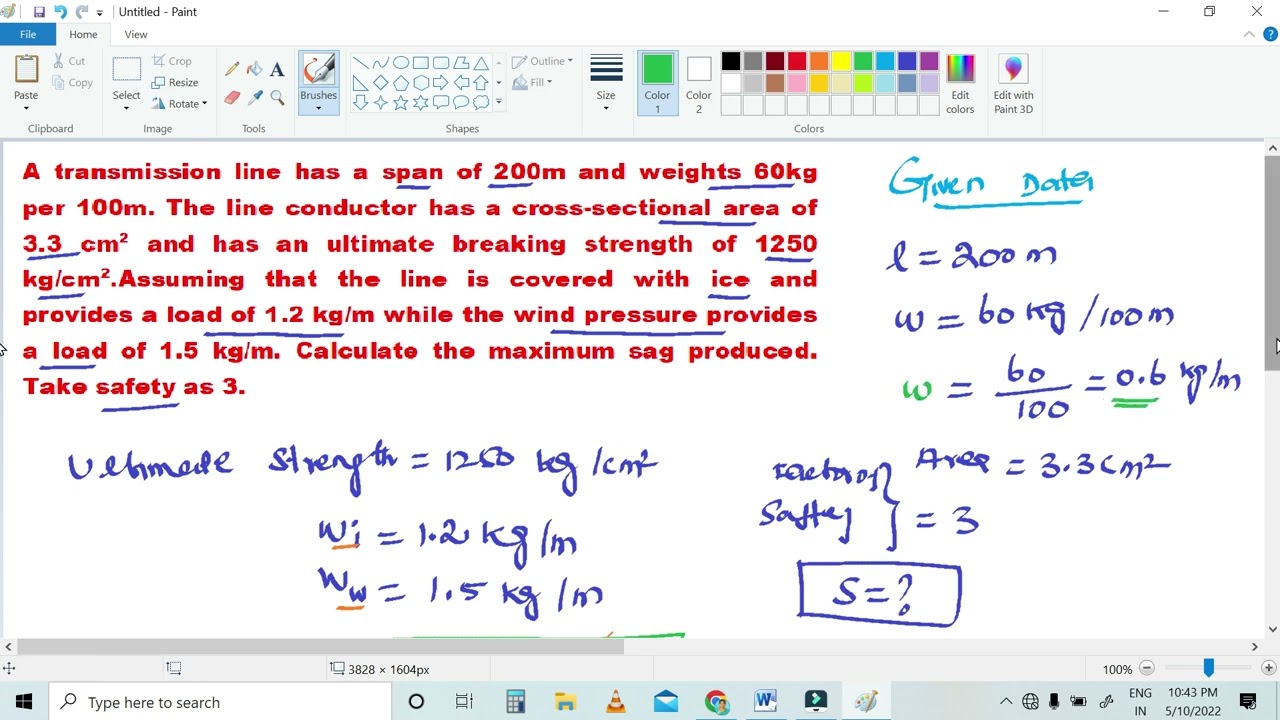 Untitled - Paint
File Home View
Paste
Cut
Copy
Clipboard
Select
Crop
Resize
Rotate
Image
Tools
Brushes
Shapes
Outline
Fill
Size
Color 1
Color 2
Colors
Edit colors
Edit with Paint 3D
A transmission line has a span of 200m and weights 60kg
per 100m. The line conductor has a cross-sectional area of
3.3 cm² and has an ultimate breaking strength of 1250
kg/cm².Assuming that the line is covered with ice and
provides a load of 1.2 kg/m while the wind pressure provides
a load of 1.5 kg/m. Calculate the maximum sag produced.
Take safety as 3.
Given Data
l = 200m
w = 60 kg /100m
w = 60/100 = 0.6 kg/m
Ultimate Strength = 1250 kg/cm²
Area = 3.3 cm²
Factor of Safety } = 3
Wi = 1.2 kg/m
Ww = 1.5 kg/m
S = ?
3828 × 1604px
100%
Type here to search
ENG
IN
10:43 PM
5/10/2022